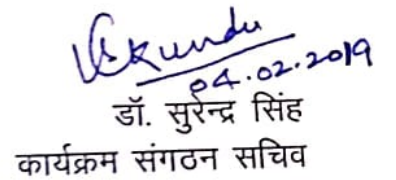 04.02.2019
डॉ. सुरेन्द्र सिंह
कार्यक्रम संगठन सचिव